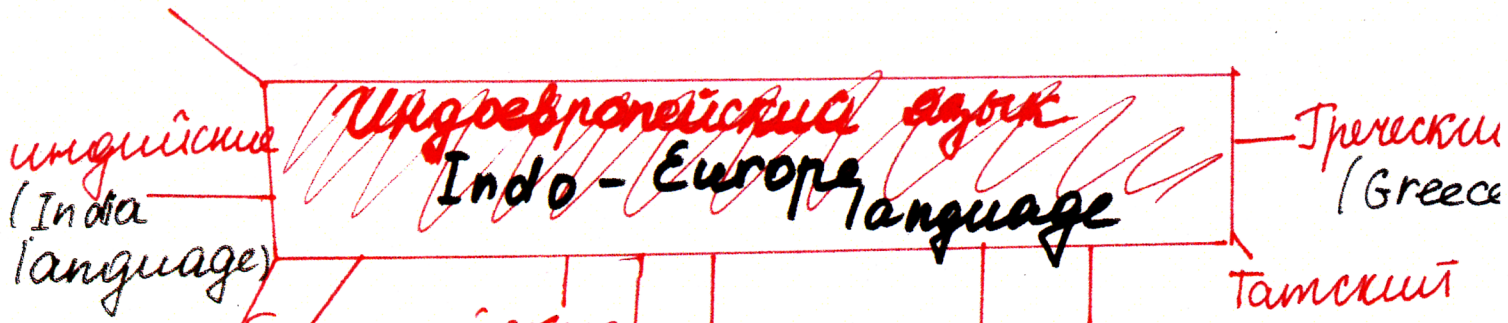 Индоевропейский язык
Indo-Europe language
индийские
(India
language)
Греческий
(Greece
Татский